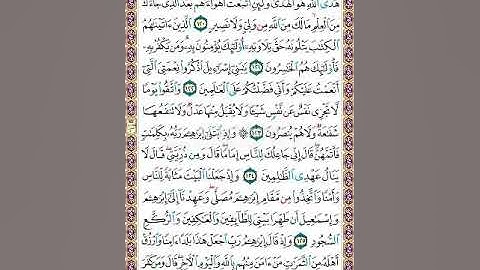 هُدَى ٱللَّهِ هُوَ ٱلْهُدَىٰ وَلَئِنِ ٱتَّبَعْتَ أَهْوَآءَهُم بَعْدَ ٱلَّذِى جَآءَكَ
مِنَ ٱلْعِلْمِ مَا لَكَ مِنَ ٱللَّهِ مِن وَلِىٍّ وَلَا نَصِيرٍ ١٢٠ ٱلَّذِينَ ءَاتَيْنَٰهُمُ
ٱلْكِتَٰبَ يَتْلُونَهُۥ حَقَّ تِلَاوَتِهِۦٓ أُو۟لَٰٓئِكَ يُؤْمِنُونَ بِهِۦ وَمَن يَكْفُرْ بِهِۦ
فَأُو۟لَٰٓئِكَ هُمُ ٱلْخَٰسِرُونَ ١٢١ يَٰبَنِىٓ إِسْرَٰٓءِيلَ ٱذْكُرُوا۟ نِعْمَتِىَ ٱلَّتِىٓ
أَنْعَمْتُ عَلَيْكُمْ وَأَنِّى فَضَّلْتُكُمْ عَلَى ٱلْعَٰلَمِينَ ١٢٢ وَٱتَّقُوا۟ يَوْمًا
لَّا تَجْزِى نَفْسٌ عَن نَّفْسٍ شَيْـًٔا وَلَا يُقْبَلُ مِنْهَا عَدْلٌ وَلَا تَنفَعُهَا
شَفَٰعَةٌ وَلَا هُمْ يُنصَرُونَ ١٢٣ ۞ وَإِذِ ٱبْتَلَىٰٓ إِبْرَٰهِۦمَ رَبُّهُۥ بِكَلِمَٰتٍ
فَأَتَمَّهُنَّ قَالَ إِنِّى جَاعِلُكَ لِلنَّاسِ إِمَامًا قَالَ وَمِن ذُرِّيَّتِى قَالَ لَا
يَنَالُ عَهْدِى ٱلظَّٰلِمِينَ ١٢٤ وَإِذْ جَعَلْنَا ٱلْبَيْتَ مَثَابَةً لِّلنَّاسِ
وَأَمْنًا وَٱتَّخِذُوا۟ مِن مَّقَامِ إِبْرَٰهِۦمَ مُصَلًّى وَعَهِدْنَآ إِلَىٰٓ إِبْرَٰهِۦمَ
وَإِسْمَٰعِيلَ أَن طَهِّرَا بَيْتِىَ لِلطَّآئِفِينَ وَٱلْعَٰكِفِينَ وَٱلرُّكَّعِ
ٱلسُّجُودِ ١٢٥ وَإِذْ قَالَ إِبْرَٰهِۦمُ رَبِّ ٱجْعَلْ هَٰذَا بَلَدًا ءَامِنًا وَٱرْزُقْ
أَهْلَهُۥ مِنَ ٱلثَّمَرَٰتِ مَنْ ءَامَنَ مِنْهُم بِٱللَّهِ وَٱلْيَوْمِ ٱلْءَاخِرِ قَالَ وَمَن كَفَرَ